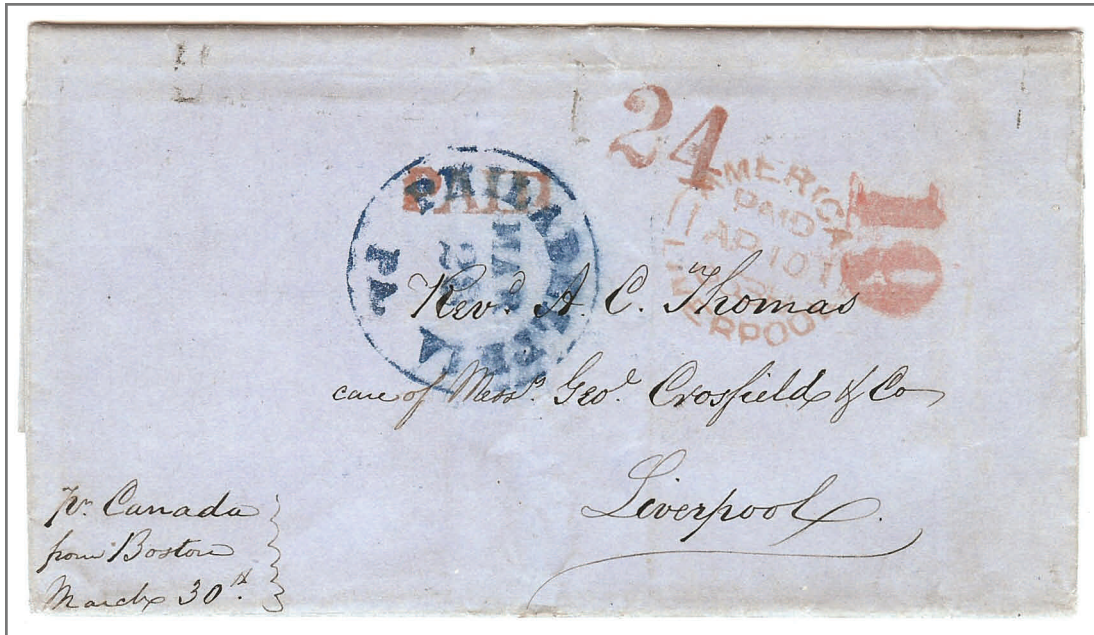 24
PAID
PHILADELPHIA
PA.
MAR
AMERICA
PAID
AP 10
LIVERPOOL
19
Revd. A. C. Thomas
care of Messrs. Geo. Crosfield & Co
Liverpool.
pr. Canada
from Boston
March 30th.